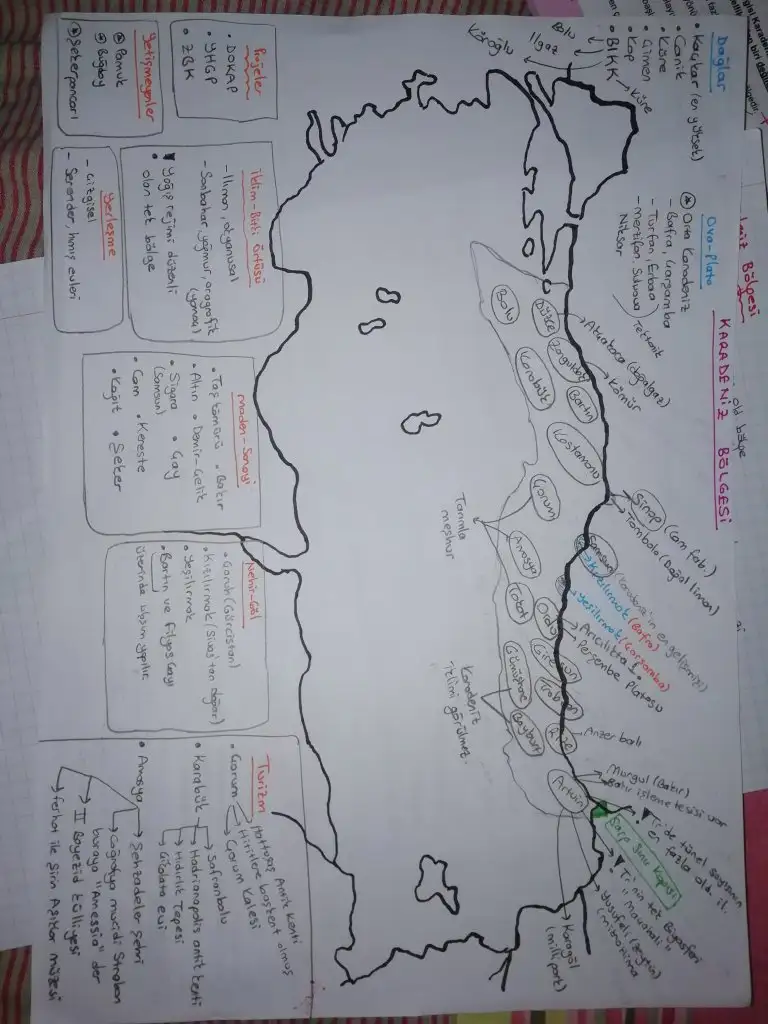 KARADENİZ BÖLGESİ
Dağlar
• Kaçkar (en yüksek)
• Canik
• Köre
• Çimen
• Kop
• BIKK
Bolu
Ilgaz
Köroğlu
Küre
Ova-Plato
Orta Karadeniz
- Bafra, Çarşamba
- Turhan, Erbaa
- Merzifon, Suluova
Niksar
Tektonik
Bolu
Düzce
Zonguldak
Karabük
Bartın
Kastamonu
Çorum
Amasya
Tokat
Ordu
Giresun
Gümüşhane
Trabzon
Bayburt
Rize
Artvin
Akçakoca (doğalgaz)
Kömür
Sinop (cam fab.)
Tombolo (Doğal liman)
Samsun (Karadeniz'in en gelişmişi)
Kızılırmak (Bafra)
Yeşilırmak (Çarşamba)
Arıcılıkta 1.
Perşembe Platosu
Anzer balı
Murgul (Bakır)
Bakır işleme tesisi var
Tr'de tünel sayısının
en fazla old. il.
Sarp Sınır Kapısı
Tr'nin tek Biyosferi
"Macahali"
Yusufeli (Zeytin)
(mikroklima
Karagöl
(milli park)
Tarımla
meşhur
Karadeniz
iklimi görülmez.
Projeler
• DOKAP
• YHGP
• ZBK
Yetişmeyenler
Pamuk
Buğday
Şekerpancarı
İklim-Bitki Örtüsü
- Ilıman, okyanusal
- Sonbahar, yağmur, orografik
(yamaç)
• Yağış rejimi düzenli
olan tek bölge
Yerleşme
- Çizgisel
- Serander, hımış evleri
Maden-Sanayi
• Taş kömürü • Bakır
• Altın • Demir-Çelik
• Sigara • Çay
(Samsun)
• Cam • Kereste
• Kağıt • Şeker
Nehir-Göl
• Çoruh (Gürcistan)
• Kızılırmak (Sivas'tan doğar)
• Yeşilırmak
• Bartın ve Filyos Çayı
üzerinde ulaşım yapılır.
Turizm
• Çorum
Hattuşaş Antik Kenti
Hititlere başkent olmuş
Çorum Kalesi
• Karabük
Safranbolu
Hadrianapolis antik kenti
Hıdırlık Tepesi
Cildata evi
• Amasya
Şehzadeler şehri
Coğrafya mucidi Strabon
buraya "Amessia" der
II Bayezid külliyesi
Ferhat ile Şirin Aşıklar müzesi